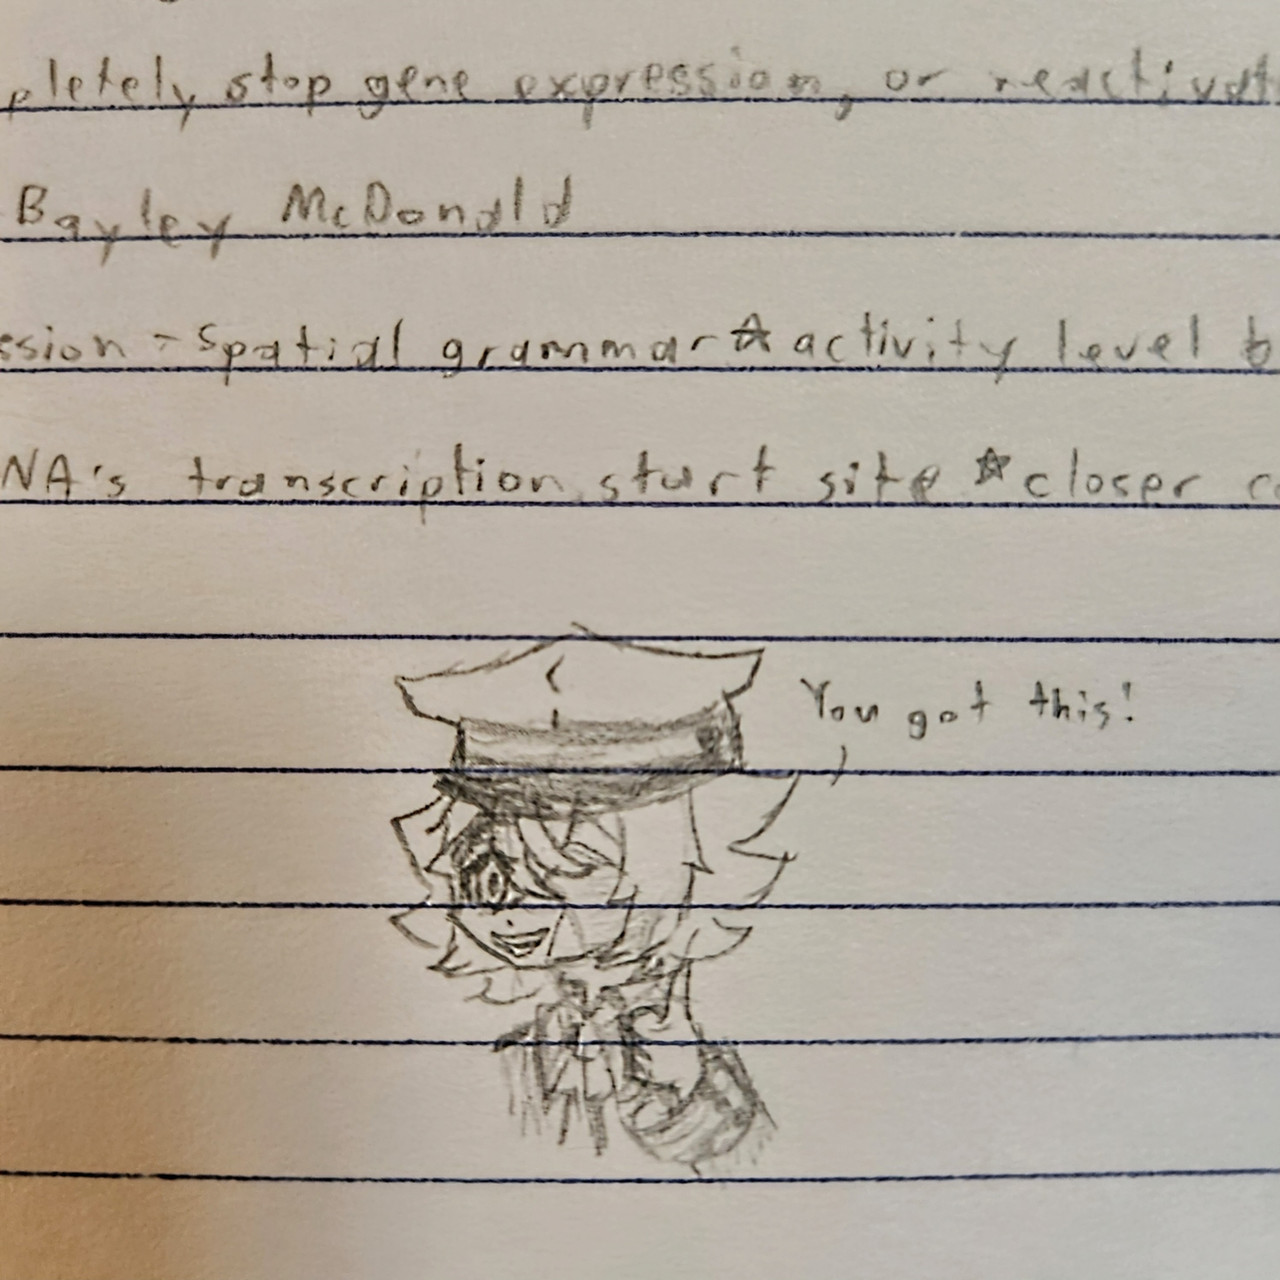 pletely stop gene expression, or reactivat
Bayley McDonald
ssion - Spatial grammar ☆ activity level b
NA's transcription start site ☆ closer co
You got this!